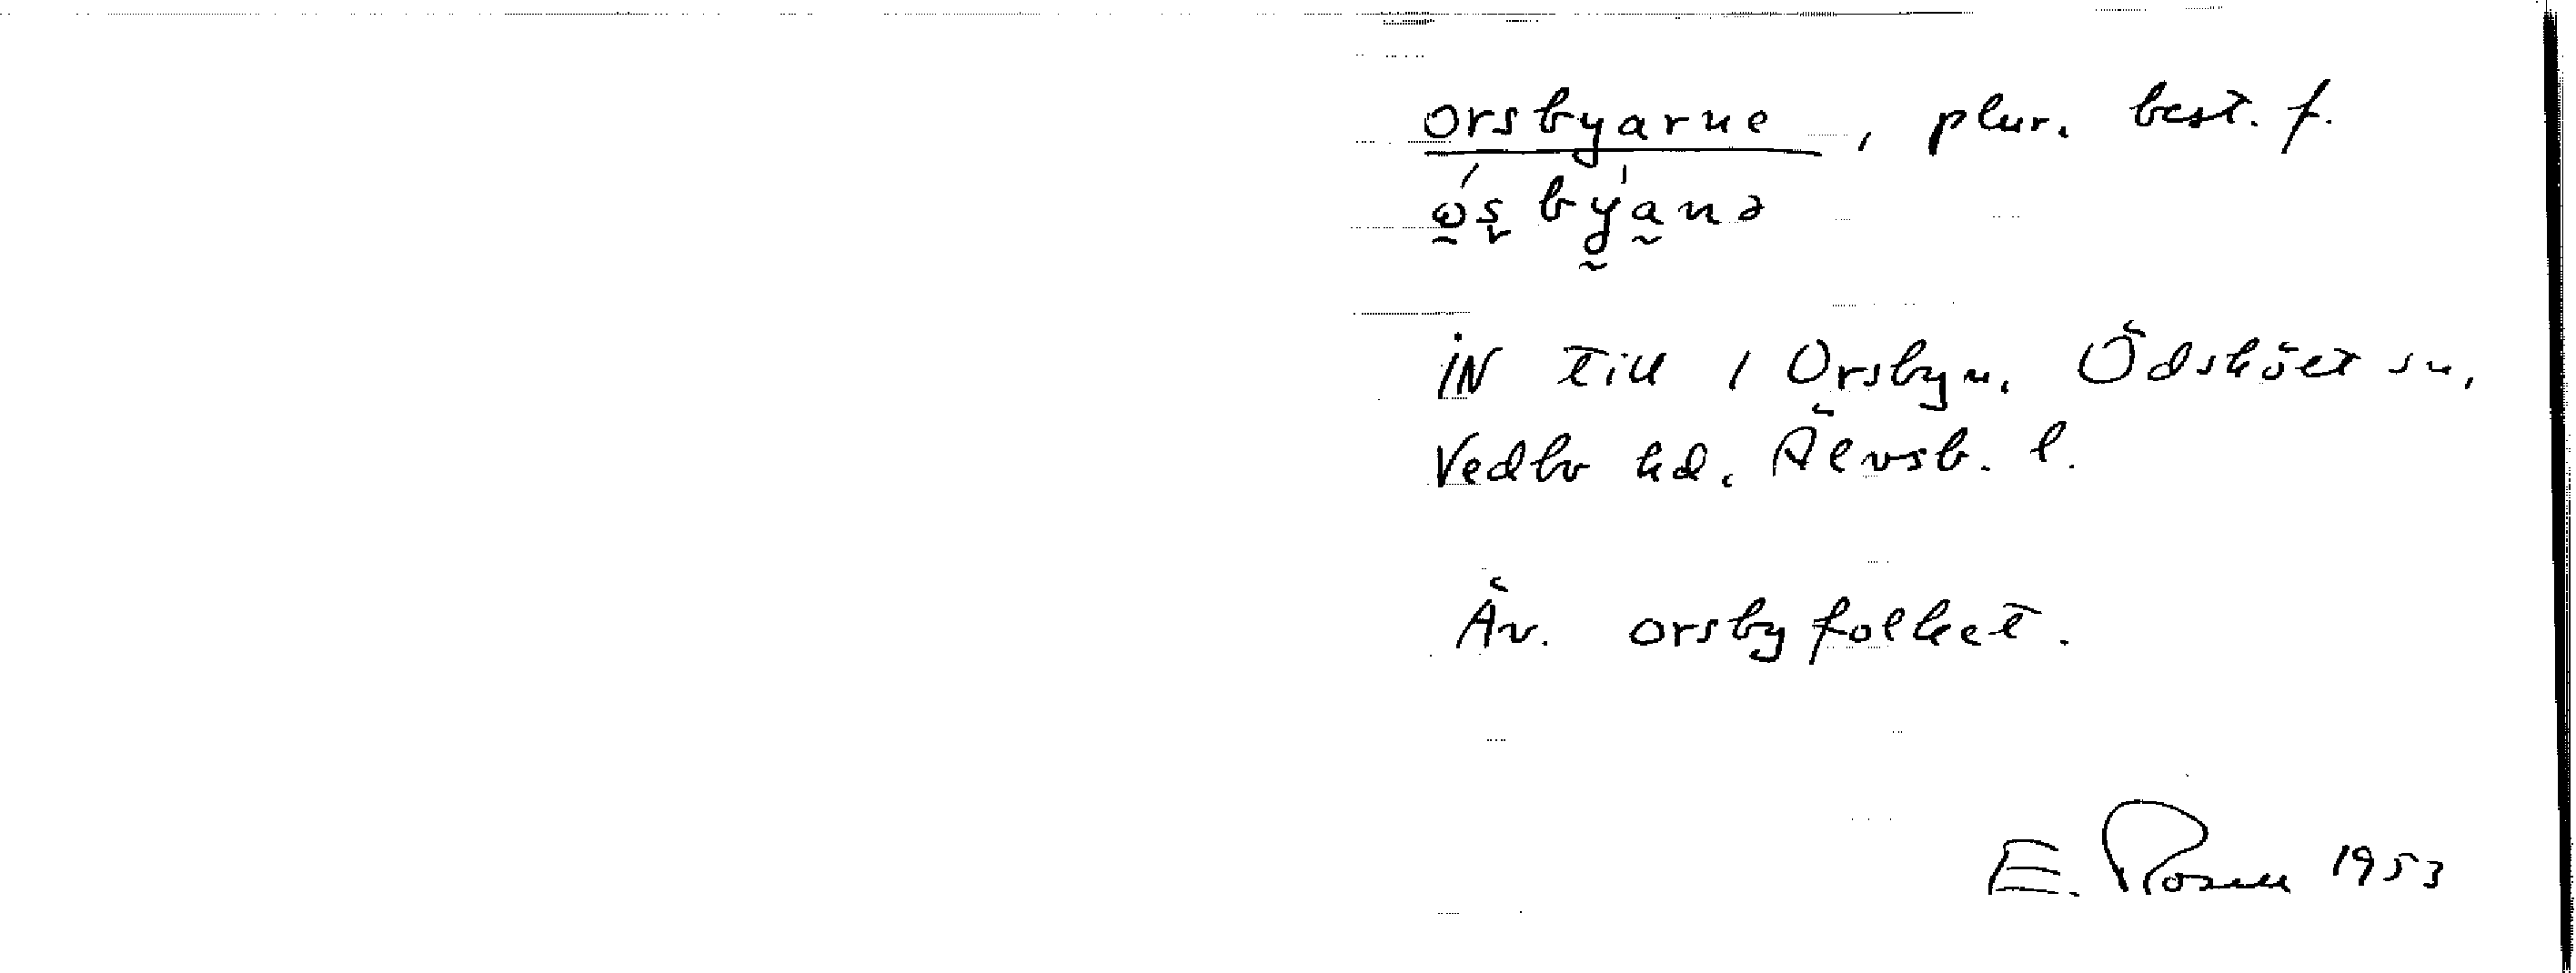 orsbyarne, plur. best. f.
ώs̬ by̰'a̰nə
IN till 1 Orsbyn. Ödskölt sn,
Vedbo hd. Älvsb. l.
Äv. orsbyfolket.
E. Rosell 1953